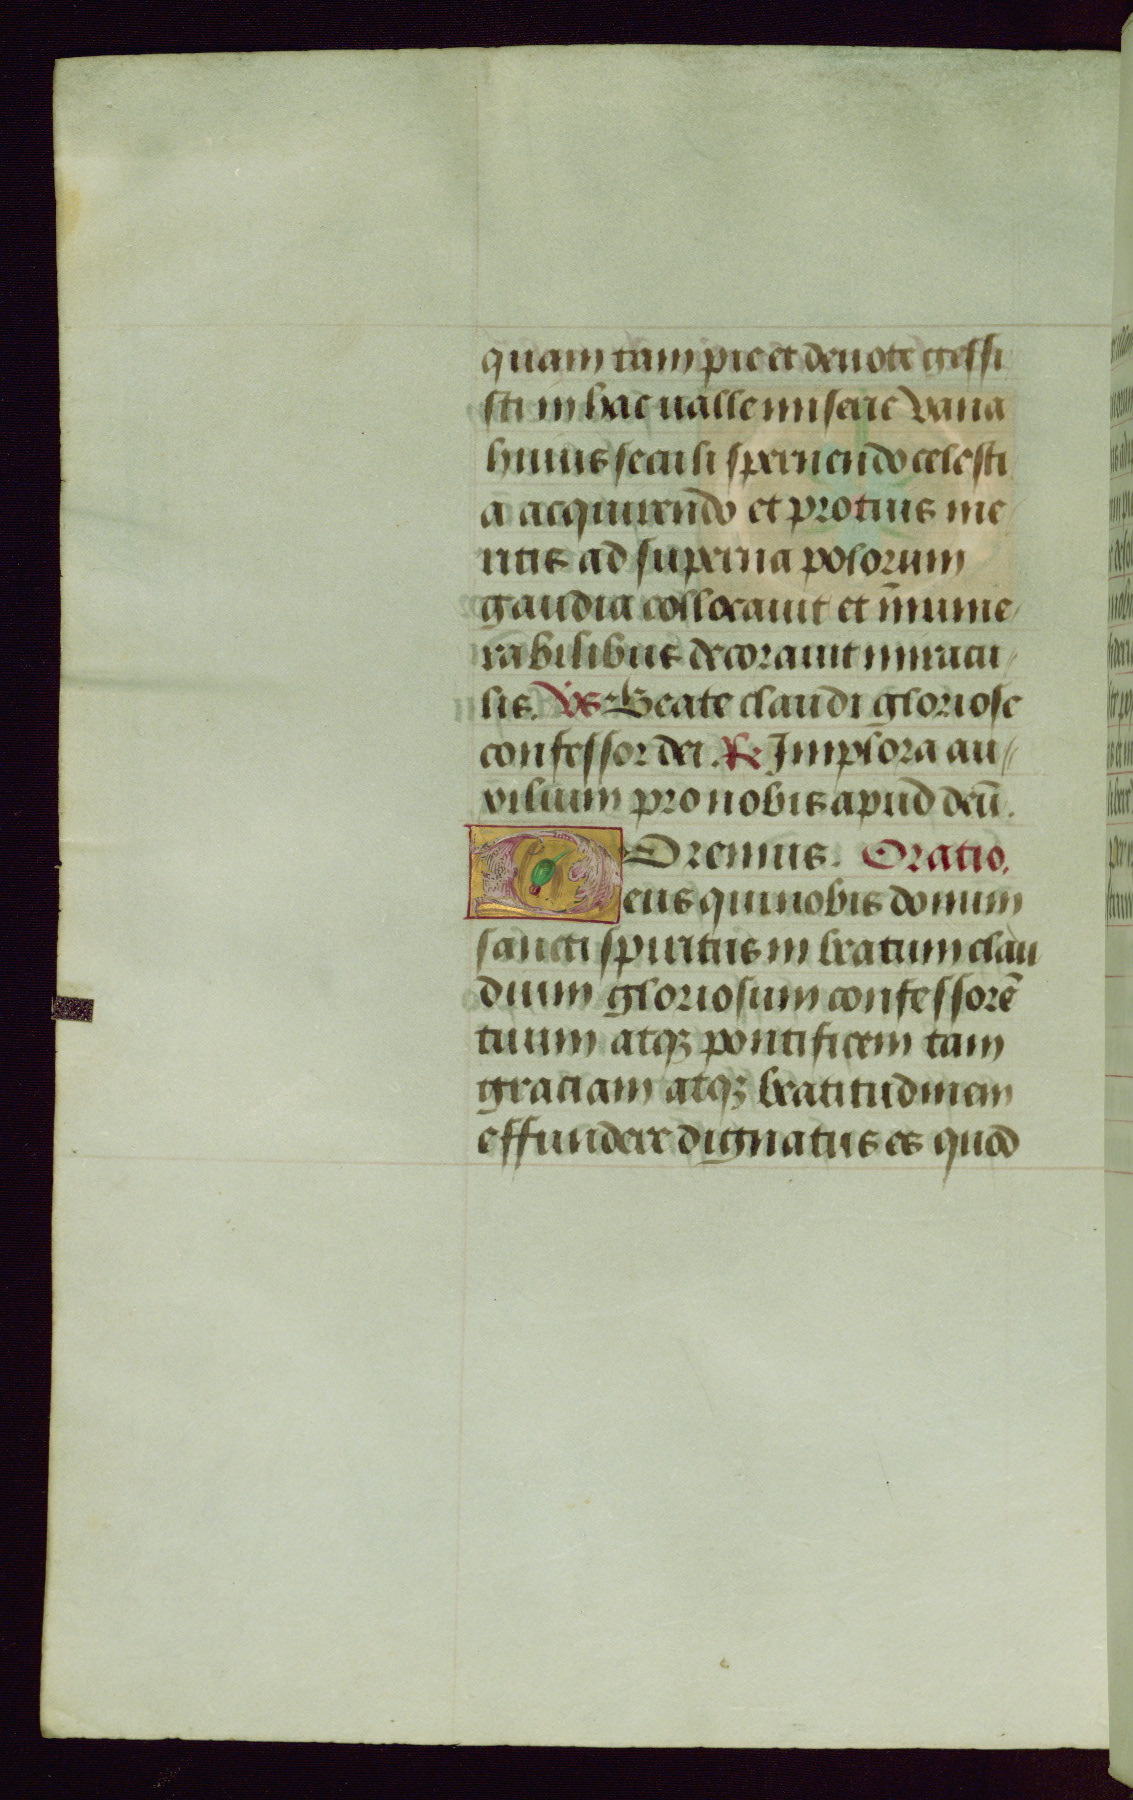 quam tam pie et deuote gessi
sti in hac ualle miserie vana
huius seculi spernendo celesti
a acquirendo et protinus me
ritis ad superna polorum
gaudia collocauit et īnume
rabilibus decorauit miracu
lis. Vs Beate claudi gloriose
confessor dei. Re Implora au
xilium pro nobis apud deū.
Oremus. Oratio.
Deus qui nobis donum
sancti spiritus in beatum clau
dium gloriosum confessorē
tuum atqꝫ pontificem tam
graciam atqꝫ beatitudinem
effundere dignatus es quod